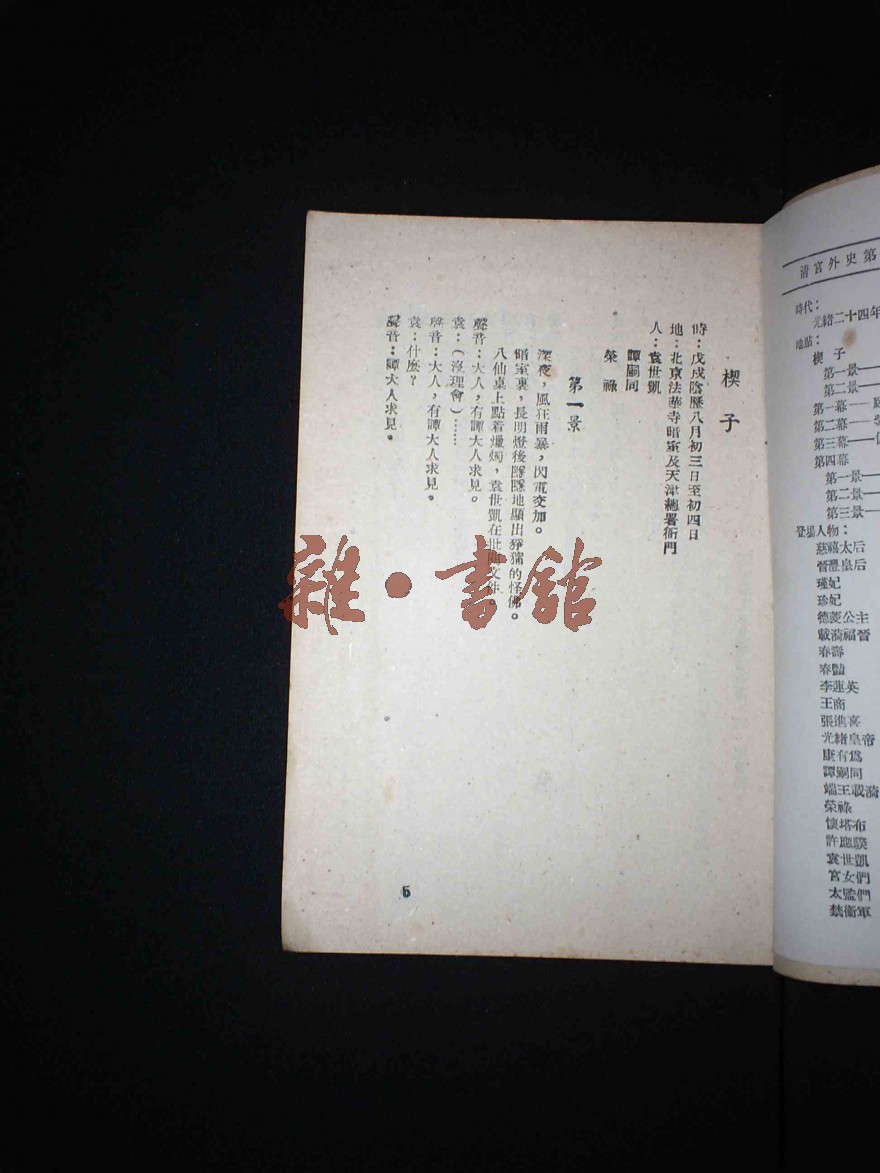 楔子
時：戊戌陰歷八月初三日至初四日
地：北京法華寺暗室及天津總署衙門
人：袁世凱
譚嗣同
榮祿
第一景
深夜，風狂雨暴，閃電交加。
暗室裏，長明燈後隱隱地顯出猙獰的怪佛。
八仙桌上點着蠟燭，袁世凱在
聲音：大人，有譚大人求見。
袁：（沒理會）……
聲音：大人，有譚大人求見。
袁：什麼？
聲音：譚大人求見。
5
雜·書館
清宮外史第
時代：
光緒二十四年
地點：
楔子
第一景——
第二景——
第一幕——
第二幕——
第三幕——
第四幕
第一景——
第二景——
第三景——
登場人物：
慈禧太后
晉豐皇后
瑾妃
珍妃
德菱公主
載漪福晉
春壽
春豔
李蓮英
王商
張進喜
光緒皇帝
康有為
譚嗣同
端王載漪
榮祿
懷塔布
許應騤
袁世凱
宮女們
太監們
禁衞軍